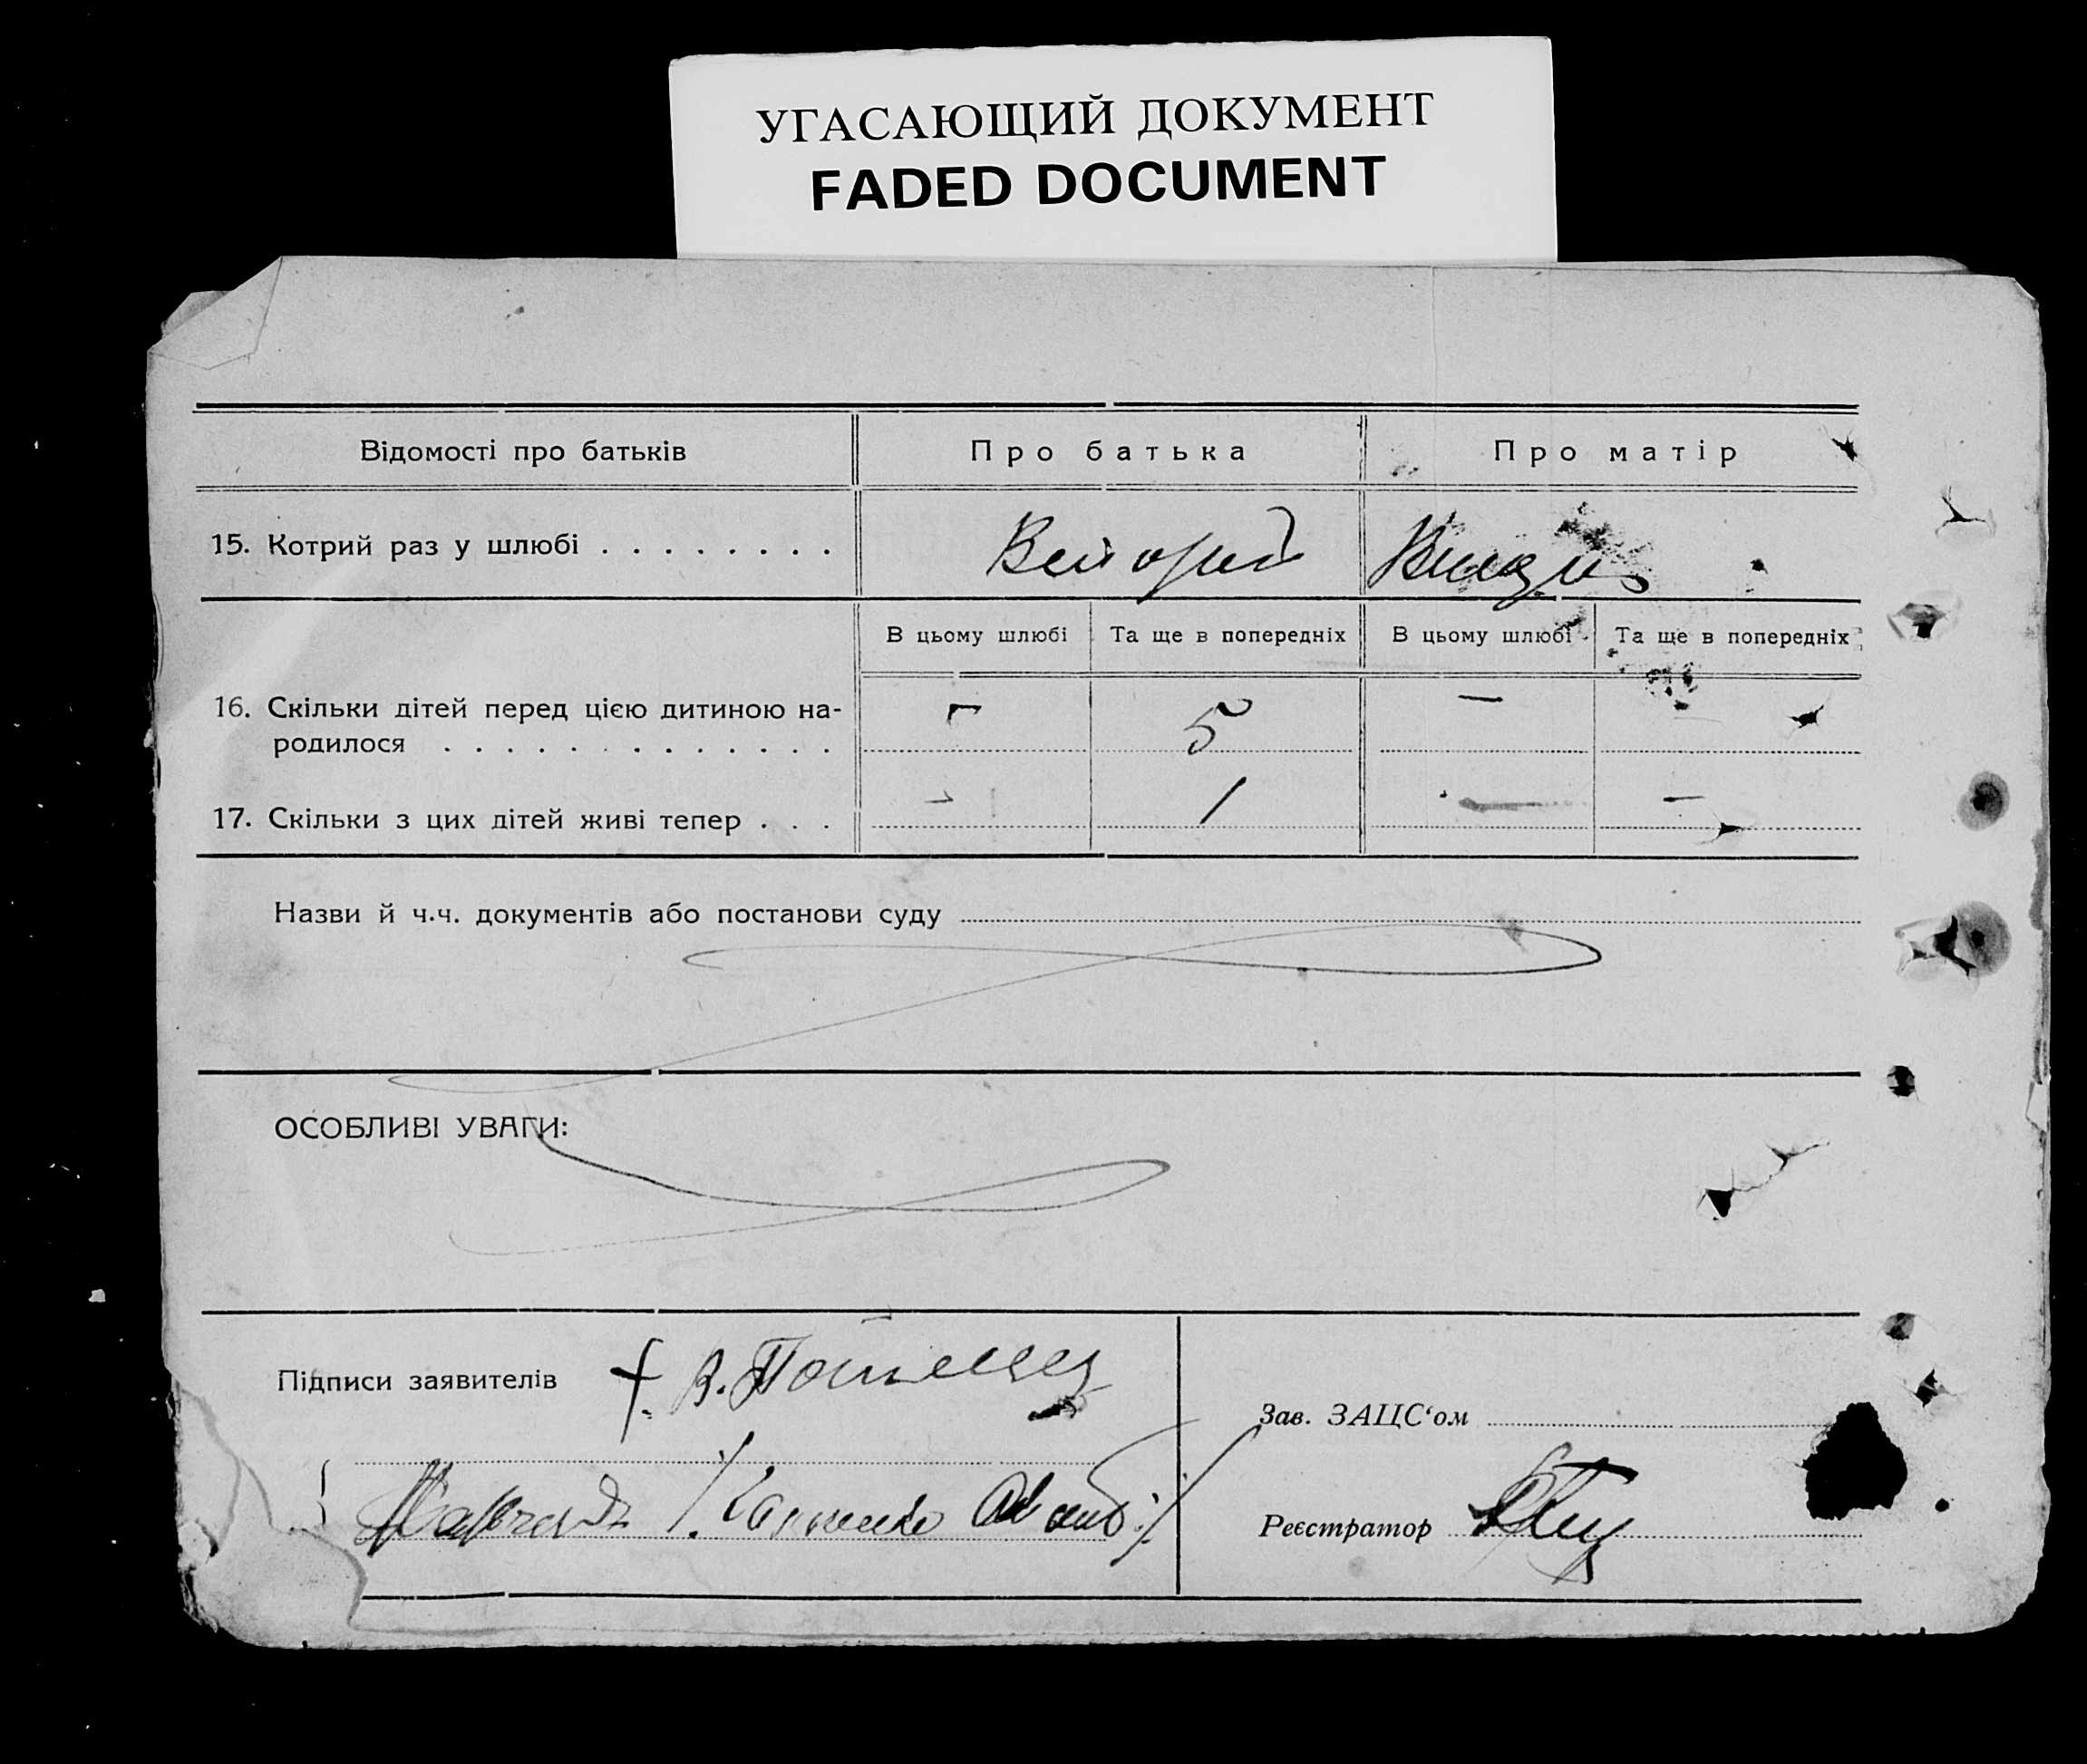 УГАСАЮЩИЙ ДОКУМЕНТ
FADED DOCUMENT
Відомості про батьків Про батька Про матір
15. Котрий раз у шлюбі . . . . . . . .
В цьому шлюбі Та ще в попередніх В цьому шлюбі Та ще в попередніх
16. Скільки дітей перед цією дитиною на-
родилося . . . . . . . . . . . . . – 5 – –
17. Скільки з цих дітей живі тепер . . . – 1 – –
Назви й ч.ч. документів або постанови суду
ОСОБЛИВІ УВАГИ:
Підписи заявителів
Зав. ЗАЦС‘ом
Реєстратор